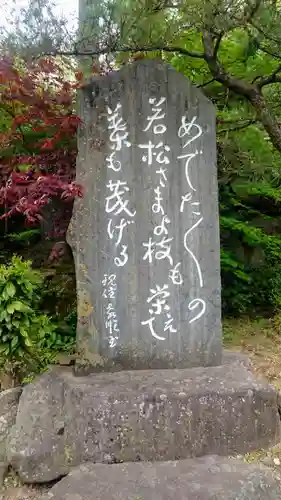 めでた〱の
若松さまよ枝も栄えて
葉も茂げる